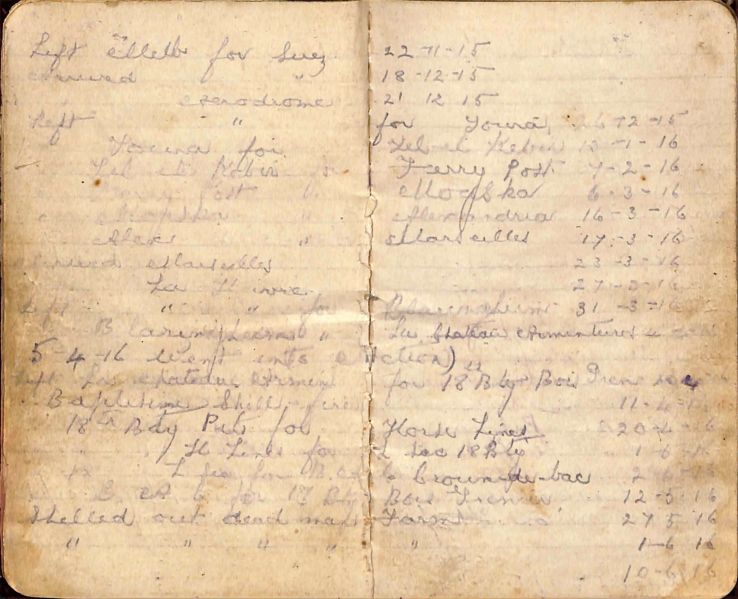 Left Melb for Suez 22-11-15
arrived " 18-12-15
aerodrome 21 12 15
Left " for Toura 26-12-15
Toura for Tel el Kebir 13-1-16
Tel el Kebir for Ferry Post 7-2-16
Ferry Post " Moaska 6-3-16
Moaska " Alexandria 16-3-16
Alex " Marseilles 17-3-16
arrived Marseilles 23-3-16
" La Havre 27-3-16
Left " " for 31-3-16
" La Chateau Armentures
5-4-16 Went into action)
Left La Chateau Armen for 18 Bty Bois Gren
Baptisime Shell fire 11-4-16
18th Bty Pits for Horse Lines 20-4-16
H Lines for 18 Bty 1-6-16
for
for 18 Bty Bois Grenier 12-5-16
Shelled out dead mans Farm 27 5 16
" " " " " 1-6 16
10-6-16